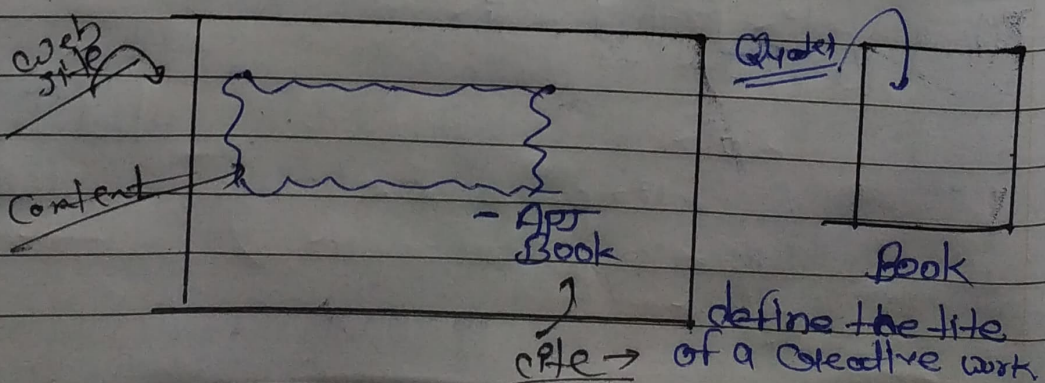 Web
site
Content
- APJ
Book
Quotes
Book
cite → define the title
of a Creative work